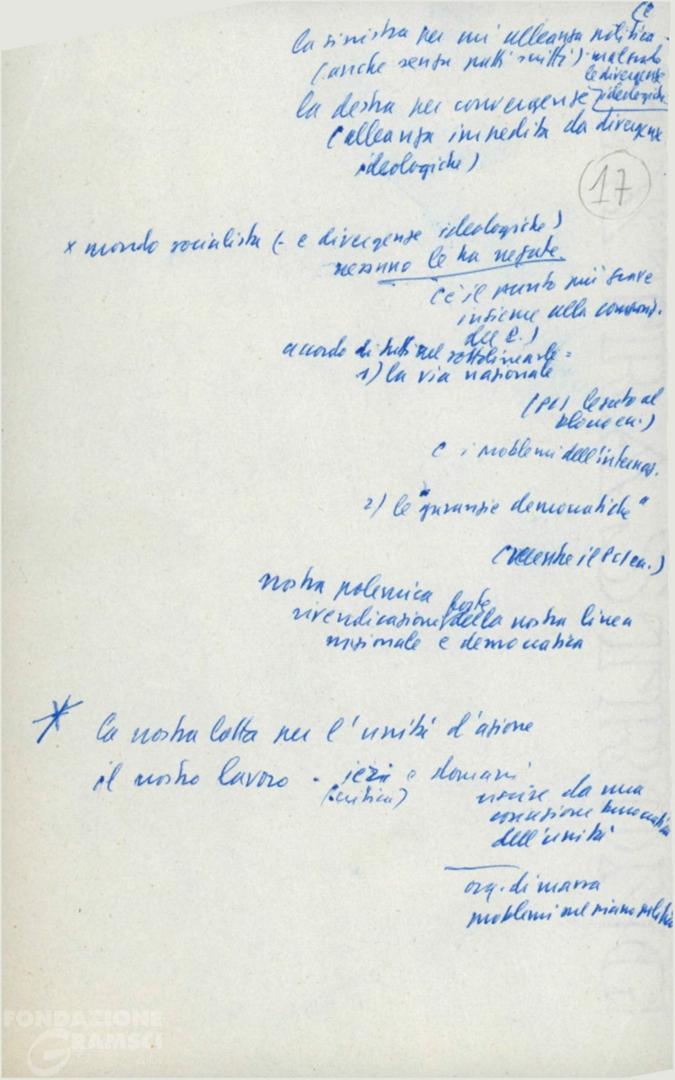 (è
la sinistra per un'alleanza politica -
(anche senza patti scritti) malgrado
le divergenze
ideologiche
la destra per convergenze
(alleanza impedita da divergenze
ideologiche)
17
x mondo socialista (- e divergenze ideologiche)
nessuno le ha negate
(è il punto più grave
insieme alla
del C.)
accordo di tutti nel sottolinearle =
1) la via nazionale
(PCI legato al
blocco ecc.)
e i problemi dell'internaz.
2) le "garanzie democratiche"
(mentre il PCI ecc.)
nostra polemica
forte
rivendicazione della nostra linea
nazionale e democratica
la nostra lotta per l'unità d'azione
il nostro lavoro - ieri e domani
(critica)
uscire da una
concezione
dell'unità
org. di massa
problemi sul piano politico
FONDAZIONE
GRAMSCI